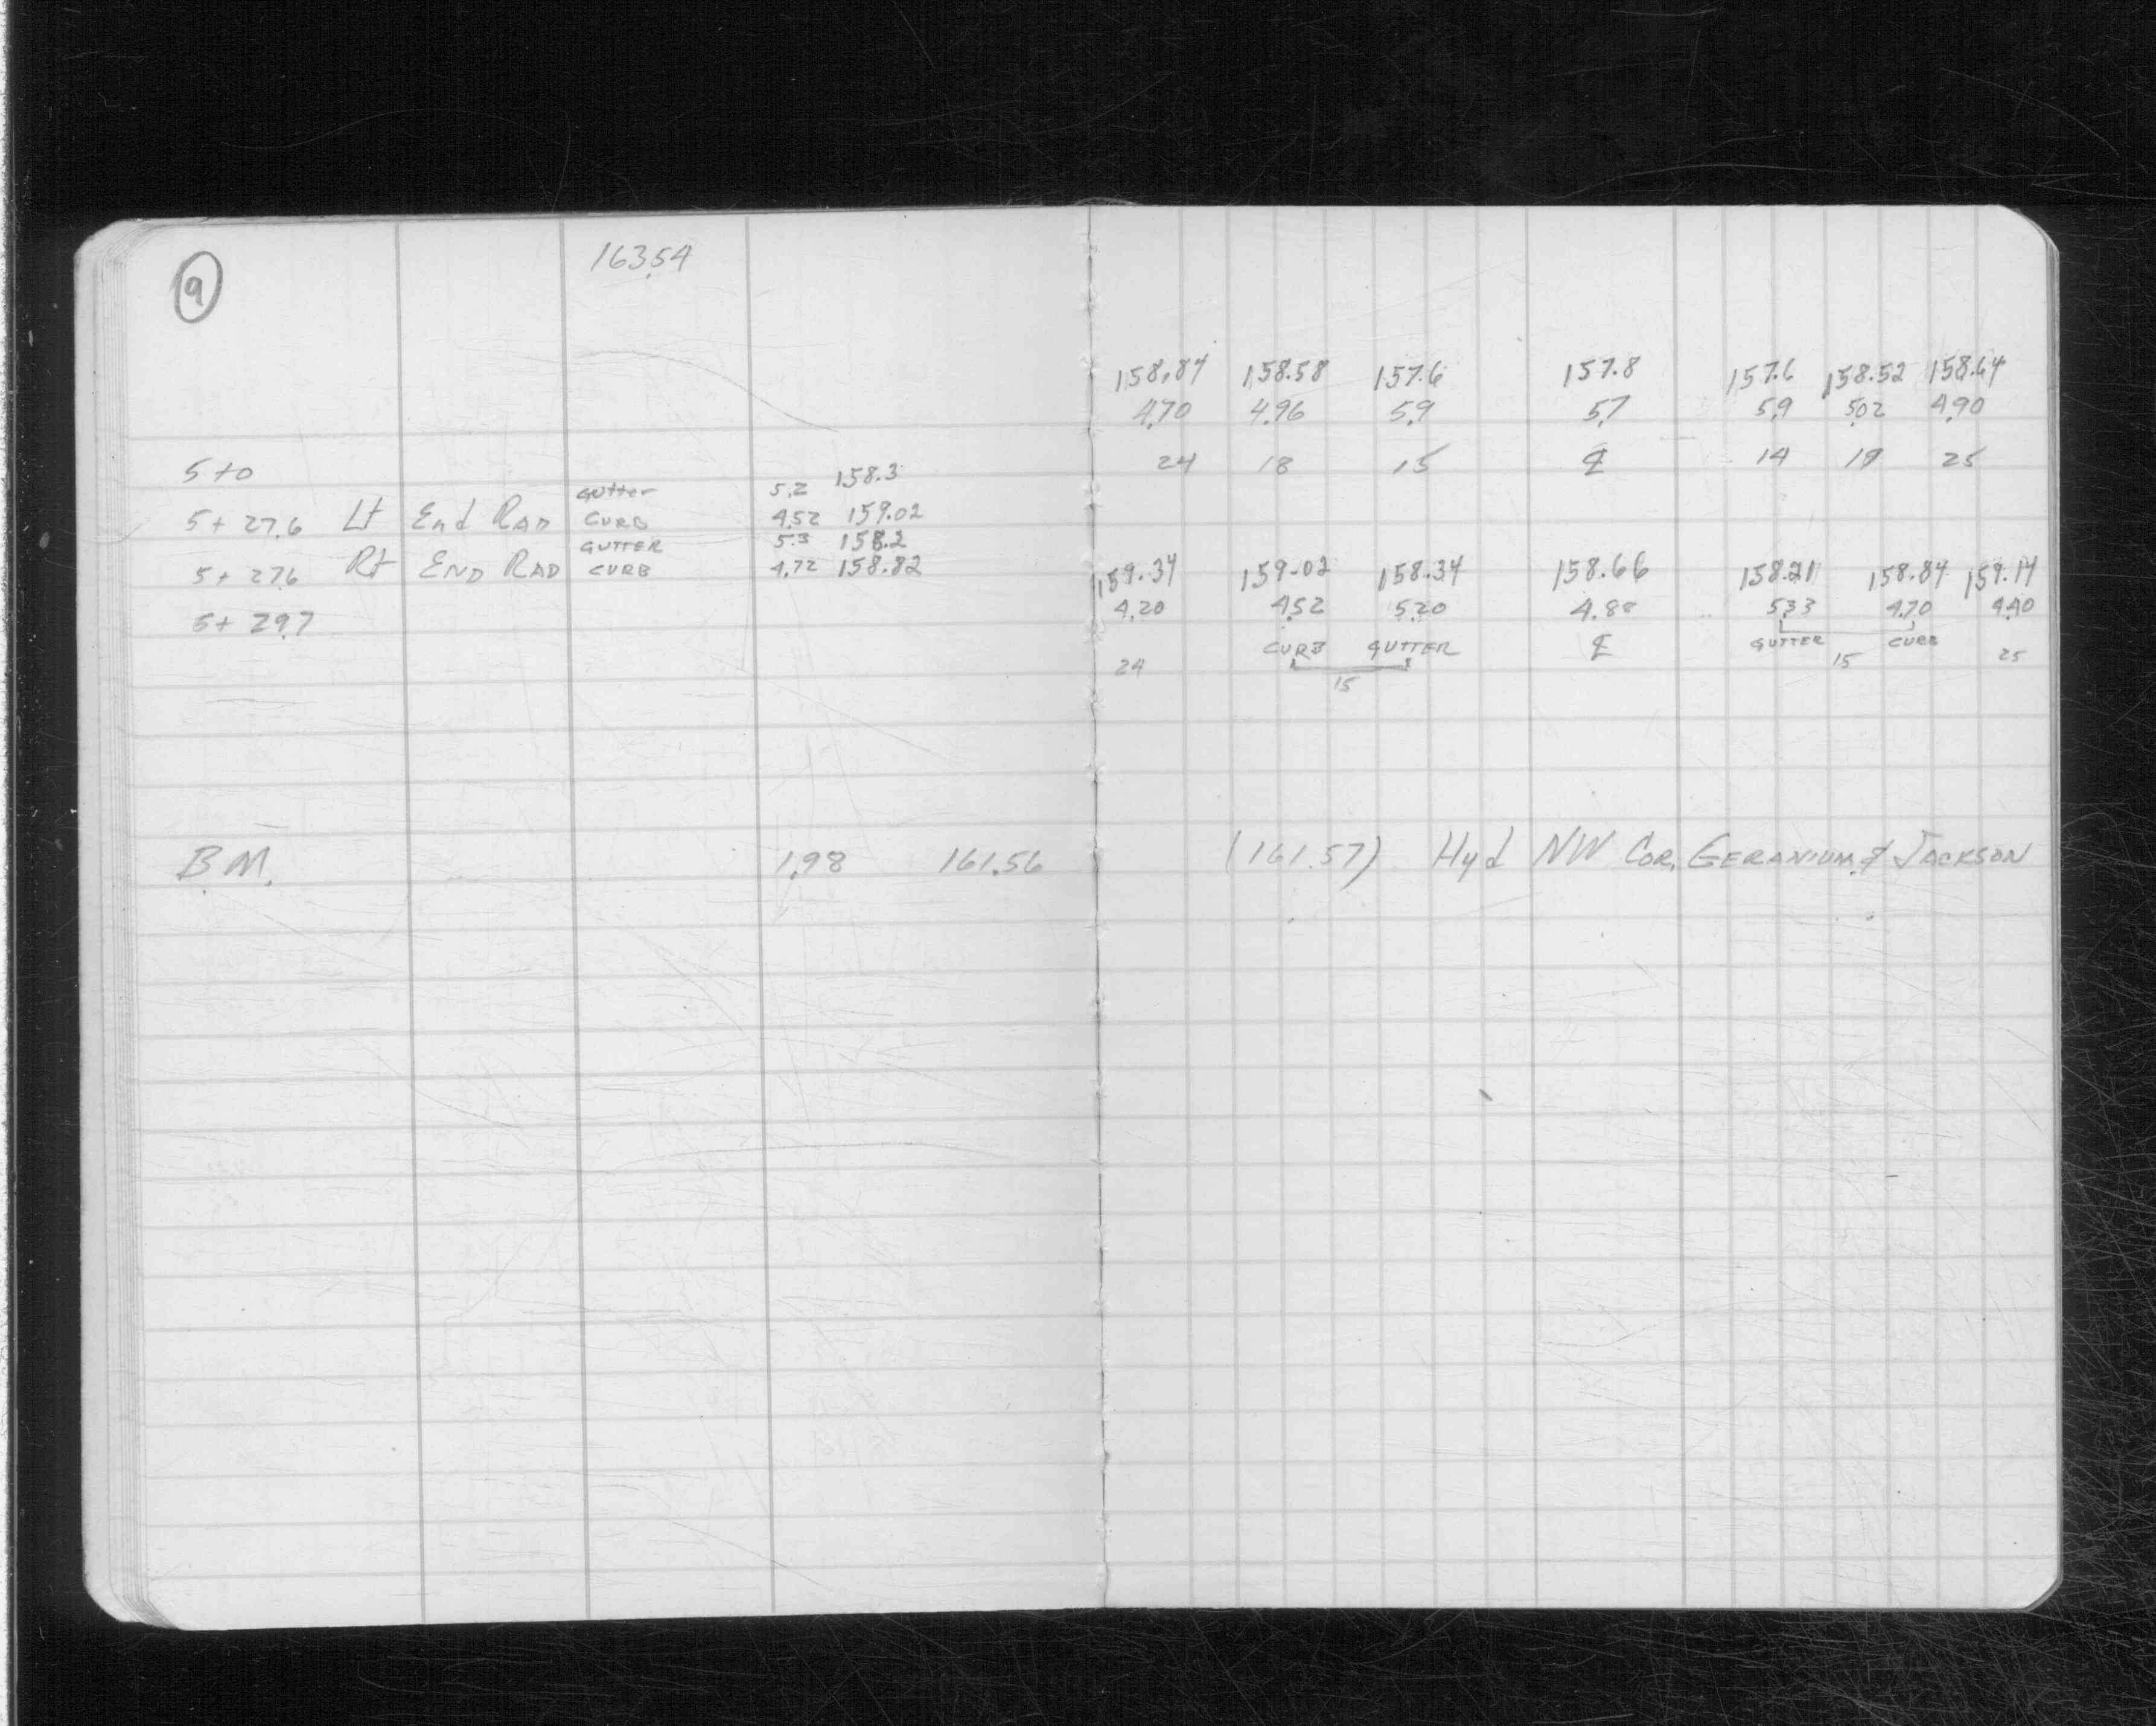 9
163.54
158.84 158.58 157.6 157.8 157.6 158.52 158.64
4.70 4.96 5.9 5.7 5.9 5.02 4.90
5+0 24 18 15 ℄ 14 19 25
Gutter 5.2 158.3
5+27.6 Lt End Rad Curb 4.52 159.02
GUTTER 5.3 158.2
5+27.6 Rt END RAD CURB 4.72 158.82
159.34 159.02 158.34 158.66 158.21 158.84 159.14
5+29.7 4.20 4.52 5.20 4.88 5.33 4.70 4.40
CURB GUTTER ℄ GUTTER CURB
24 15 15 25
B.M. 1.98 161.56 (161.57) Hyd NW COR. GERANIUM & JACKSON